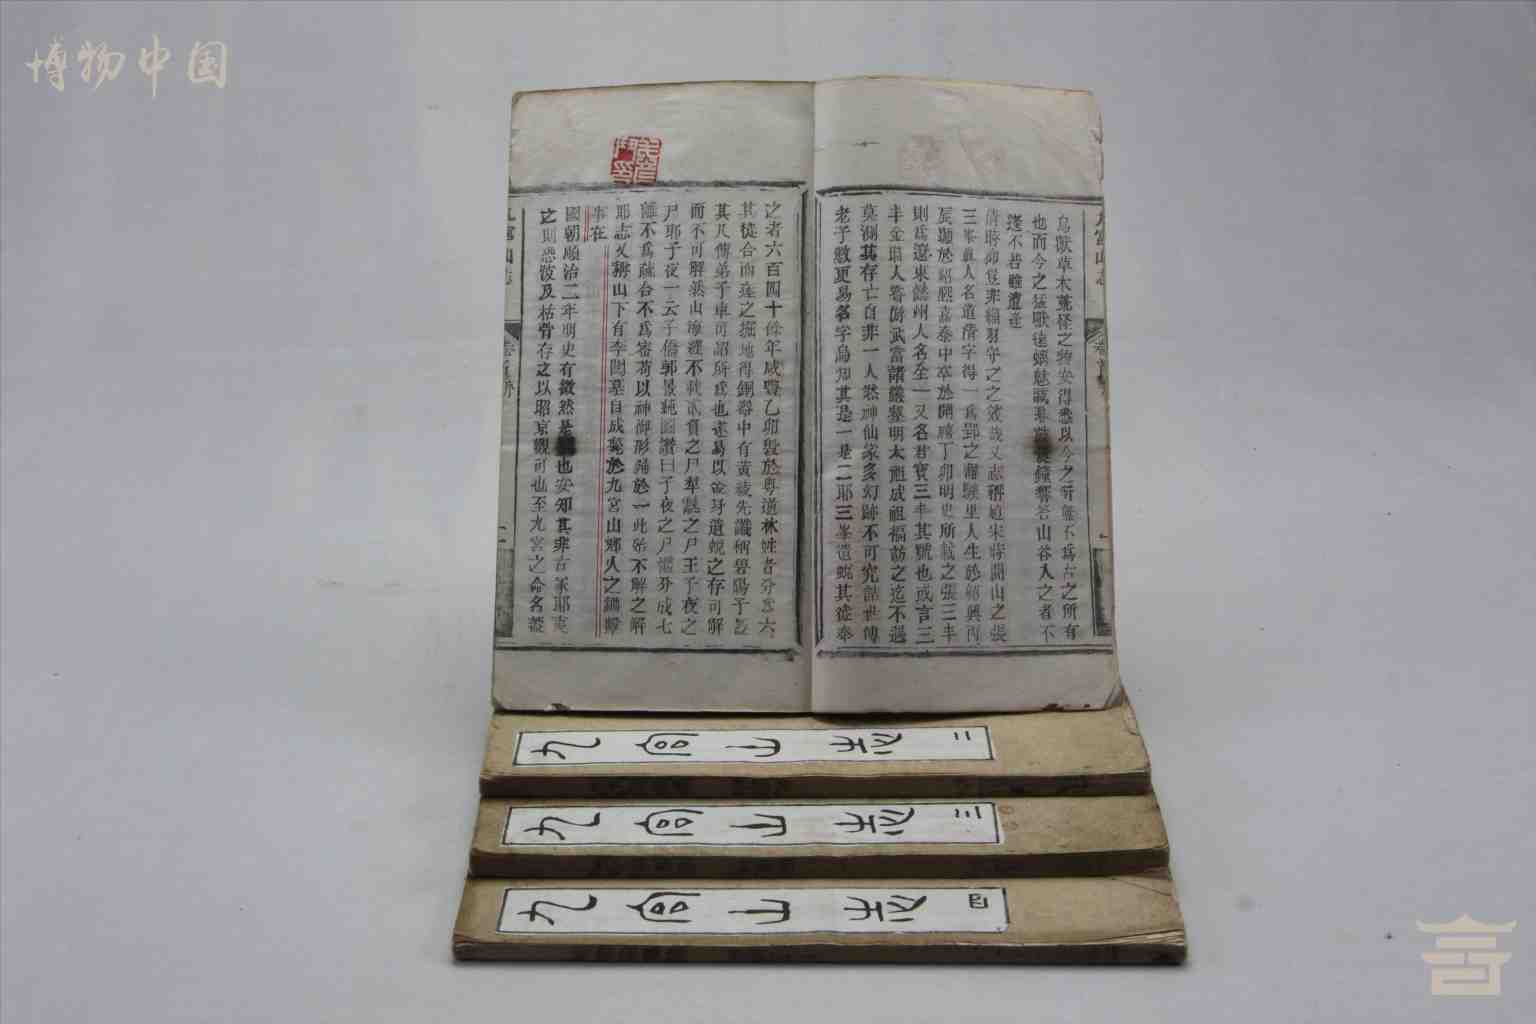 博物中国
九宮山志
鳥獸草木蕃怪之物安得悉以今之所無不爲古之所有
也而今之猛獸遠螭魅藏 鐘響答山谷入之者不
逢不若雖遭
清時抑豈非福 守之之效哉又志稱 宋時開山之張
三峯眞人名道清字得一爲郢之 里人生於紹興丙
辰顯於紹熙嘉泰中卒於開禧丁卯明史所載之張三丰
則爲遼東懿州人名全一又名君寶三丰其號也或言三
丰金時人嘗遊武當諸巖壑明太祖成祖 訪之迄不遇
莫測其存亡自非一人然神仙家多幻跡不可究詰世傳
老子數更易名字烏知其是一是二耶三峯遺蛻其徒奉
之者六百四十餘年咸豐乙卯毀於粵 林姓者分 六
其徒合而 之掘地得銅器中有黃綾先讖稱
其凡傳弟子 可謂 也 易以金牙遺蛻之存可解
而不可解 山海 不 負之尸 之尸王子夜之
尸耶子夜一云子僑郭景純圖讚曰子夜之尸體分成七
離不爲疏合不爲密苟以神御形歸於一此殆不解之解
耶志又稱山下有李闖墓自成斃於九宮山鄉人之鋤擊
事在
國朝順治二年明史有徵然是 也安知其非古冢耶 
之則恐波及枯骨存之以昭京觀可也至九宮之命名
九宮山志 二
九宮山志 三
九宮山志 四